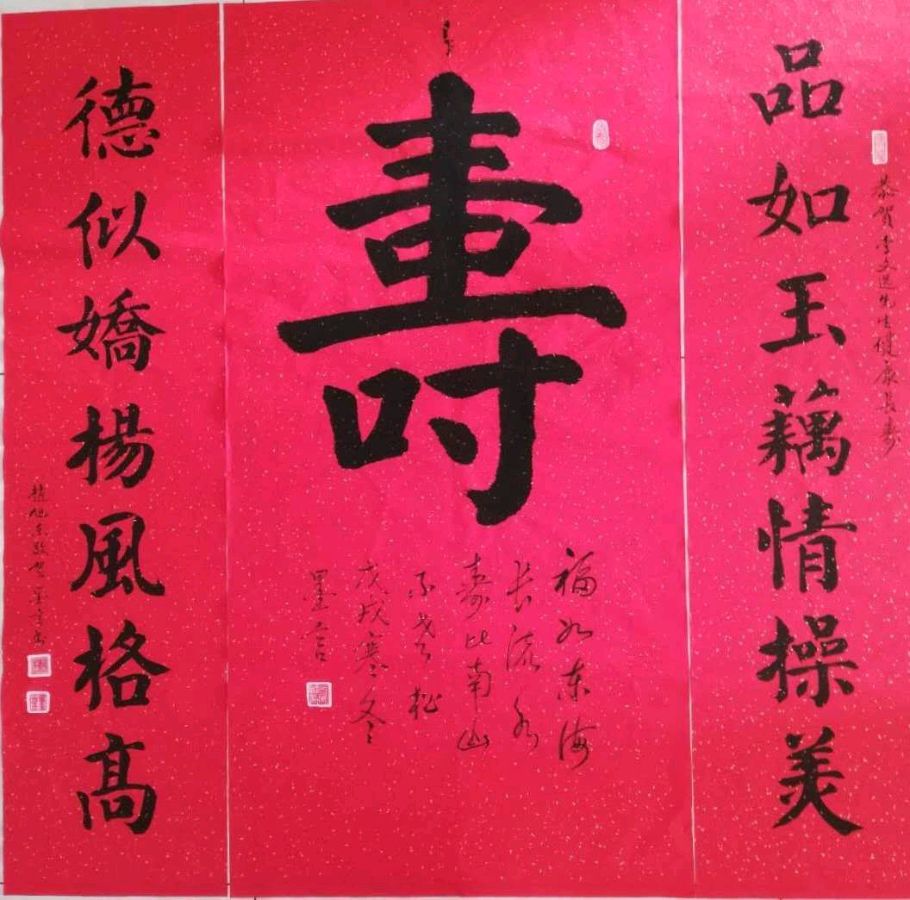 品如玉藕情操美
恭贺李文选先生健康长寿
壽
福如东海
长流水
寿比南山
不老松
戊戌寒冬
墨言
德似嬌楊風格高
敬贺墨言书